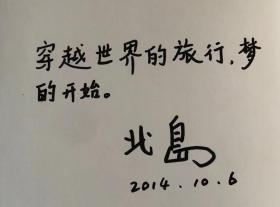 穿越世界的旅行,梦
的开始。
北島
2014.10.6